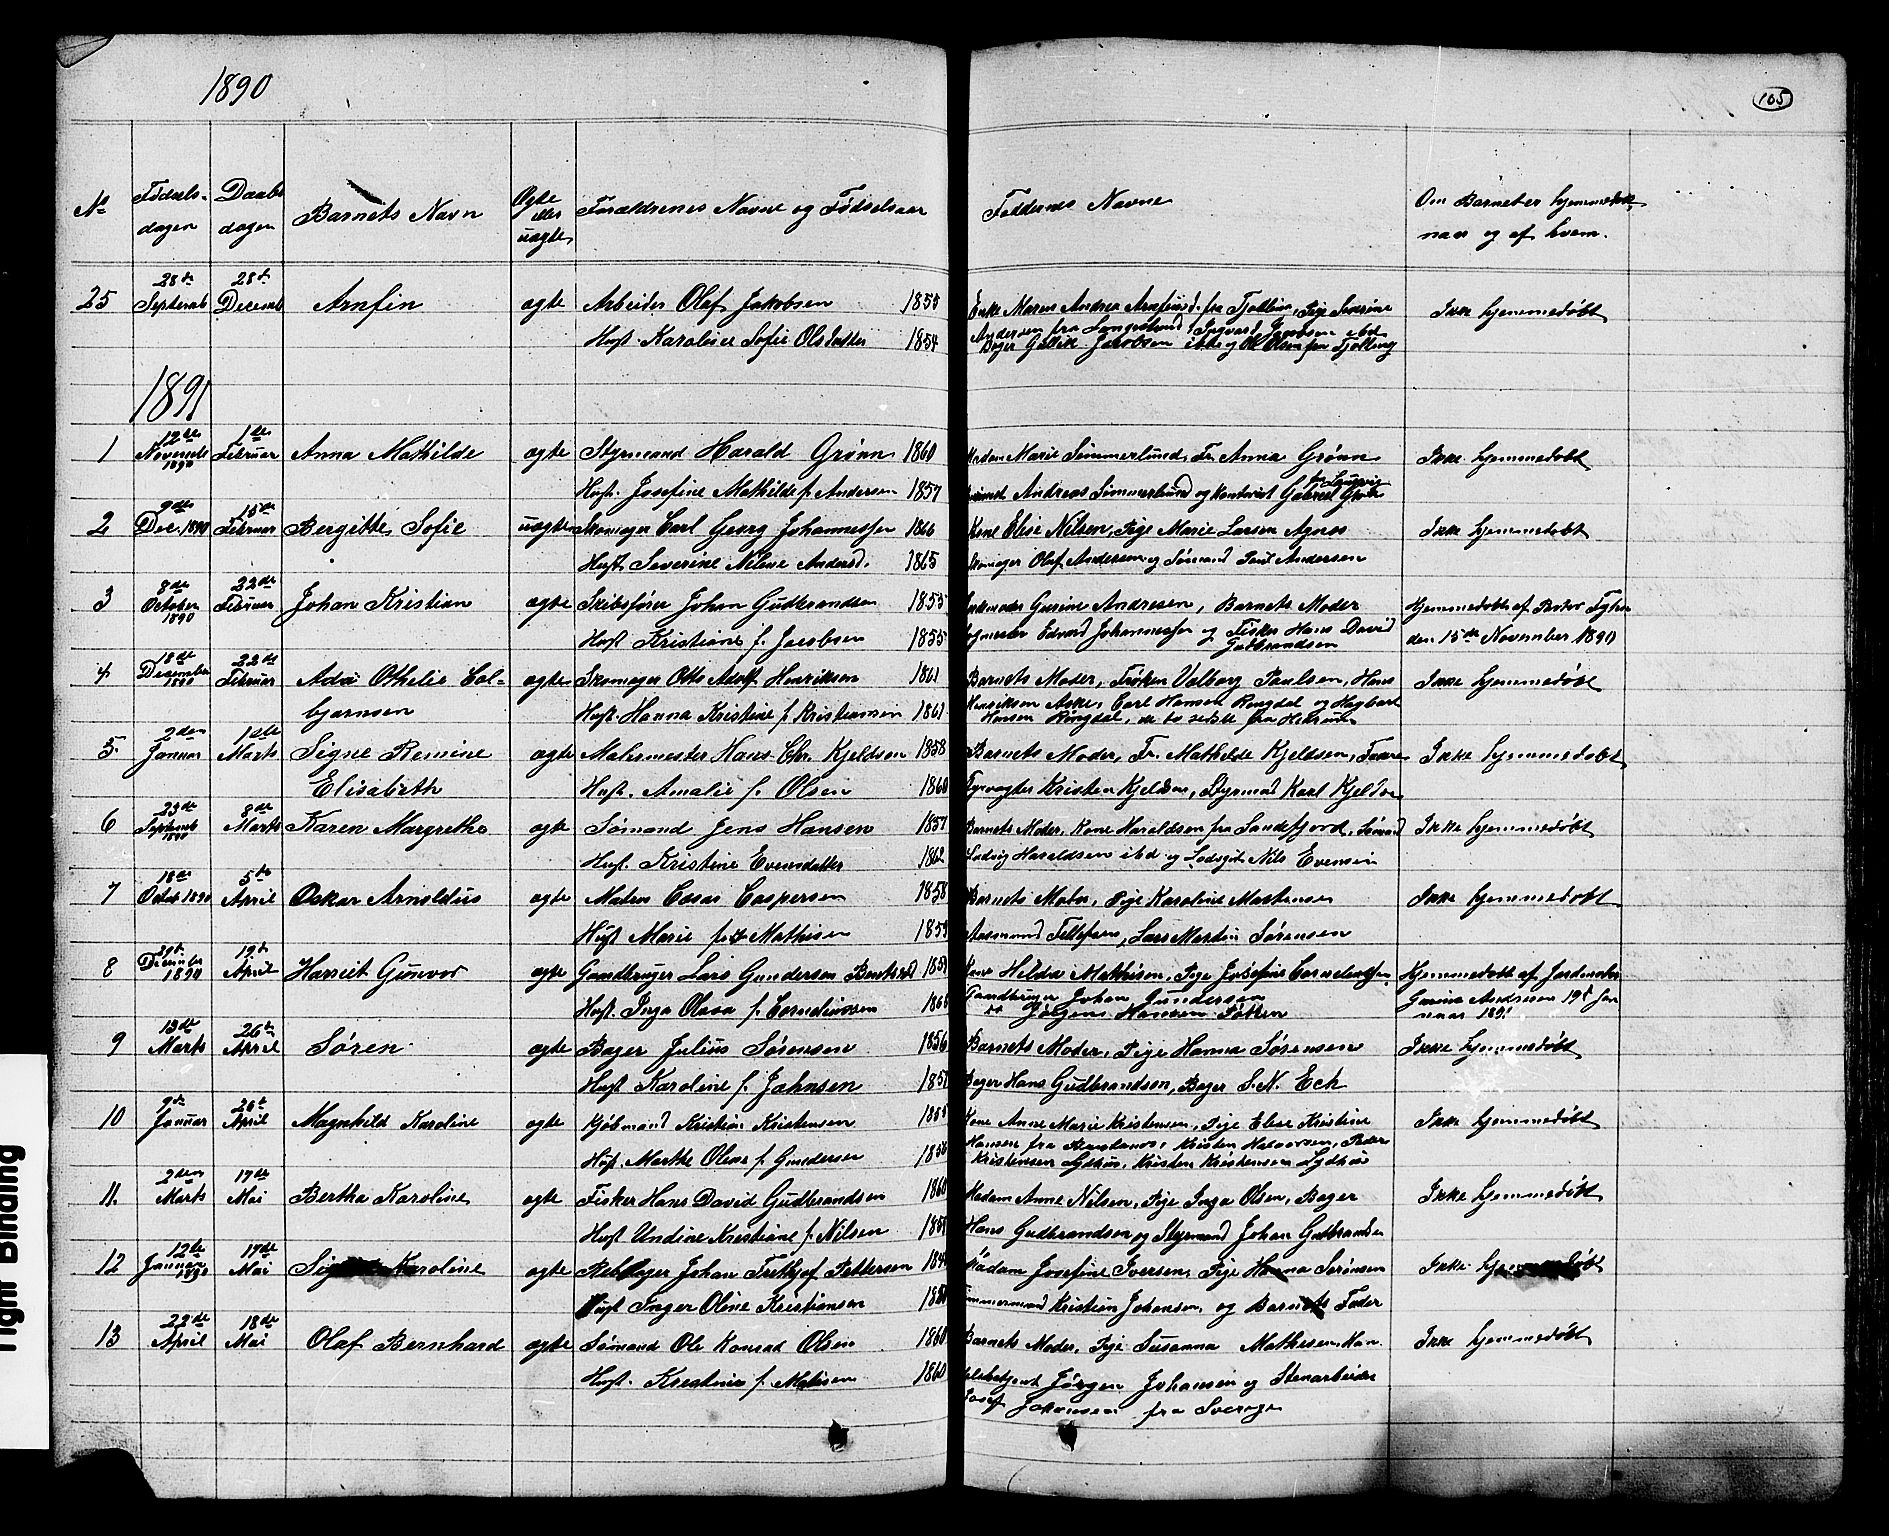 1890
105
No Fødsels- dagen Daabs dagen Barnets Navn Ægte eller uægte Forældrenes Navne og Fødselsaar Faddernes Navne Om Barnet er hjemmedøbt, naar og af hvem.
25 28de Septemb 28de Decemb Arnfin ægte Arbeider Olaf Jakobsen 1855 Enke Maren Andrea fra Tjølling, Pige Severine Ikke hjemmedøbt
Hust. Karoline Sofie Olsdatter 1854 Andersen fra Langesund, Ingvard Jacobsen ibd
Bager Jacobsen ibd og Ole Olsen fra Tjølling
1891
1 12te Novembr 1890 1ste Februar Anna Mathilde ægte Styrmand Harald Grønn 1860 Madam Marie Sømmerlund, Fr. Anna Grønn Ikke hjemmedøbt
Hust. Josefine Mathilde f. Andersen 1857 Andreas Sømmerlund og Kontorist Gabriel fra Laurvig
2 9de Dec. 1890 15de Februar Bergitte Sofie uægte Skomager Carl Georg Johannessen 1866 Kone Elise Nilsen, Pige Marie Larsen Agnes Ikke hjemmedøbt
Hust. Severine Nilene Andersd. 1865 Skomager Olaf Andersen og Sømand Andersen
3 8de October 1890 22de Februar Johan Kristian ægte Skibsfører Johan Gudbrandsen 1855 Gurine Andresen, Barnets Moder Hjemmedøbt af
Hust. Kristiane f. Jacobsen 1855 Edvard Johannessen og Fisker Hans David Gudbrandsen den 15de November 1890
4 18de December 1890 22de Februar Ada Othelie Col- ægte Skomager Otto Adolf Henriksen 1861 Barnets Moder, Frøken Valborg Paulsen, Hans Ikke hjemmedøbt
bjørnsen Hust. Hanna Kristine f. Kristiansen 1861 Henriksen Aske, Carl Hansen Ringdal og Hagbart
Hansen Ringdal, de to sidste fra
5 2den Januar 1ste Marts Signe Remine ægte Malermester Hans Chr. Kjeldsen 1858 Barnets Moder, Fr. Mathilde Kjeldsen, Ikke hjemmedøbt
Elisabeth Hust. Amalie f. Olsen 1860 Fyrvogter Kristen Kjeldsen, Styrmand Karl Kjeldsen
6 23de Septemb 1890 8de Marts Karen Margrethe ægte Sømand Jens Hansen 1857 Barnets Moder, Kone Haraldsen fra Sandefjord, Sømand Ikke hjemmedøbt
Hust. Kristine Evensdatter 1862 Ludvig Haraldsen ibd og Nils Evensen
7 18de Octob 1890 5te April Oskar Arnoldus ægte Matros Casar Caspersen 1858 Barnets Moder, Pige Karoline Martensen Ikke hjemmedøbt
Hust. Marie f. Mathisen Tellefsen, Lars Martin Sørensen
8 December 1890 19de April Harriet Gunvor ægte Gaardbruger Lars Gundersen Kone Hilda Mathisen, Pige Josefine Hjemmedøbt af Jordmoder
Hust. Inga Olava f. Corneliussen Gaardbruger Johan Gundersen Gurine Andresen 19de Ja-
Jørgens Hansen nuar 1891
9 13de Marts 26de April Søren ægte Bager Julius Sørensen 1856 Barnets Moder, Pige Hanna Sørensen Ikke hjemmedøbt
Hust. Karoline f. Jahnsen Bager Hans Gudbrandsen, Bager S. N. Eck
10 9de Januar 26de April Magnhild Karoline ægte Kjøbmand Kristian Kristensen 1855 Kone Anne Marie Kristensen, Pige Elise Kristine Ikke hjemmedøbt
Hust. Marthe Olene f. Gundersen Hansen fra Kristen Halvorsen, Peder
Kristensen Lydhus, Kristen Kristensen Lydhus
11. 2den Marts 17de Mai Bertha Karoline ægte Fisker Hans David Gudbrandsen 1860 Madam Anne Nilsen, Pige Inga Olsen, Bager Ikke hjemmedøbt
Hust. Undine Kristiane f. Nilsen Hans Gudbrandsen og Styrmand Johan Gudbrandsen
12 12te Januar 1890 17de Mai Karoline ægte Rebslager Johan Frethjof Pettersen Madam Josefine Iversen, Pige Hanna Sørensen Ikke hjemmedøbt
Hust. Inger Oline Kristiansen Tømmermand Kristian Johansen, og Barnets Fader
13 22de April 18de Mai Olaf Bernhard ægte Sømand Ole Konrad Olsen 1860 Barnets Moder, Pige Susanna Mathesen, Han- Ikke hjemmedøbt
Hust. Kristine f. 1860 delsbetjent Jørgen Johansen og Stenarbeider
Josef Johansen fra Sverige
Tight Binding